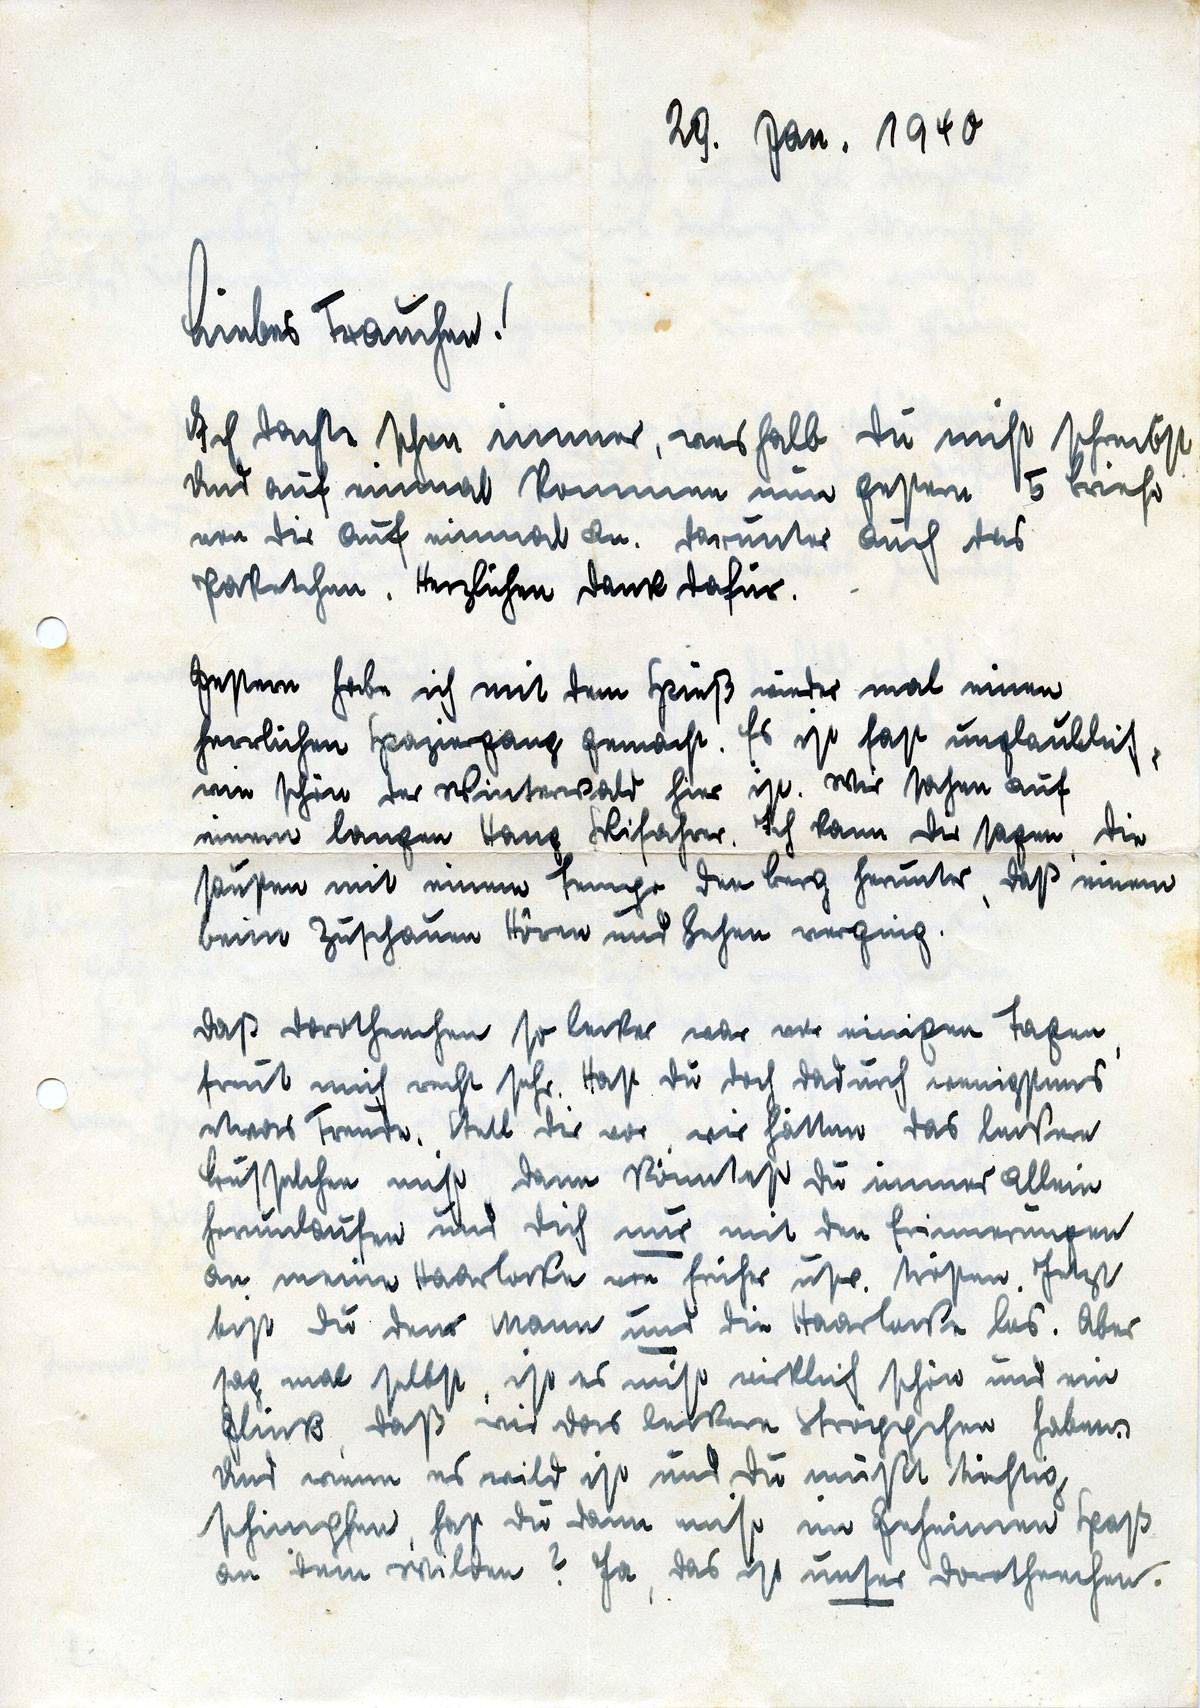 29. Jan. 1940
Liebes Trauchen!
Ich dachte schon immer, weshalb du nicht schreibst
Und auf einmal kommen nun gestern 5 Briefe
von dir auf einmal an. Darunter auch das
Paketchen. Herzlichen Dank dafür.
Gestern habe ich mit dem Spieß wieder mal einen
herrlichen Spaziergang gemacht. Es ist fast unglaublich,
wie schön der Winterwald hier ist. Wir sahen auf
einem langen Hang Skifahrer. Ich kann dir sagen, die
sausten mit einem Tempo den Berg herunter, daß einem
beim Zuschauen Hören und Sehen verging.
Daß Dorotheechen so lecker war vor einigen Tagen,
freut mich recht sehr. Hast du doch dadurch wenigstens
etwas Freude. Stell dir vor, wir hätten das leckere
Busselchen nicht, dann könntest du immer allein
herumlaufen und dich nur mit den Erinnerungen
an meine Haarlocke von früher usw. trösten. Jetzt
bist du den Mann und die Haarlocke los. Aber
sag mal selbst, ist es nicht wirklich schön und ein
Glück, daß wir das leckere Ströppchen haben.
Und wenn es wild ist und du mußt tüchtig
schimpfen, hast du dann nicht im Geheimen Spaß
an dem Wilden? Ja, das ist unser Dorotheechen.